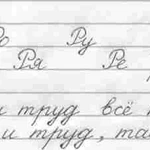 Ру
Ря Ре
труд всё
и труд, та